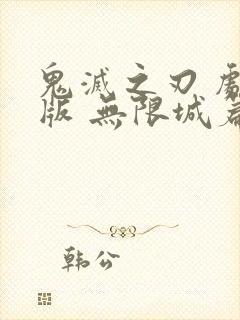 鬼滅之刃
版 無限城
韩公